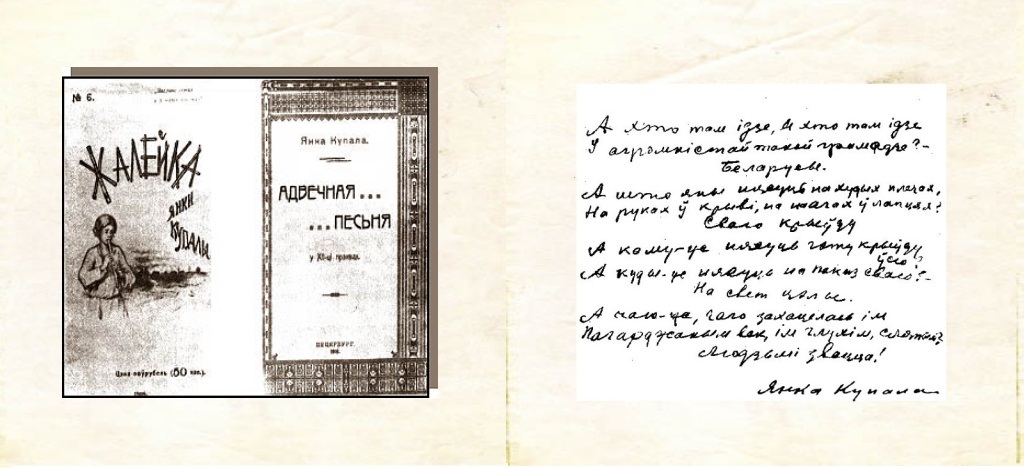 № 6.
ЖАЛЕЙКА
ЯНКИ
КУПАЛИ
Цэна паўрубель (50 кап.)
Янка Купала.
АДВЕЧНАЯ...
...ПЕСЬНЯ
у XII-ці праявах.
ПЕЦЕРБУРГ.
1910.
А хто там ідзе, а хто там ідзе
У агромністай такой грамадзе? –
Беларусы.
А што яны нясуць на худых плячах,
На руках у крыві, на нагах у лапцях?
Сваю крыўду
А куды-ж нясуць гэту крыўду
ўсю,
А куды-ж нясуць на паказ сваю? –
На свет цэлы.
А чаго-ж, чаго захацелась ім
Пагарджаным век, ім глухім, сляпым?
Людзьмі звацца!
Янка Купала